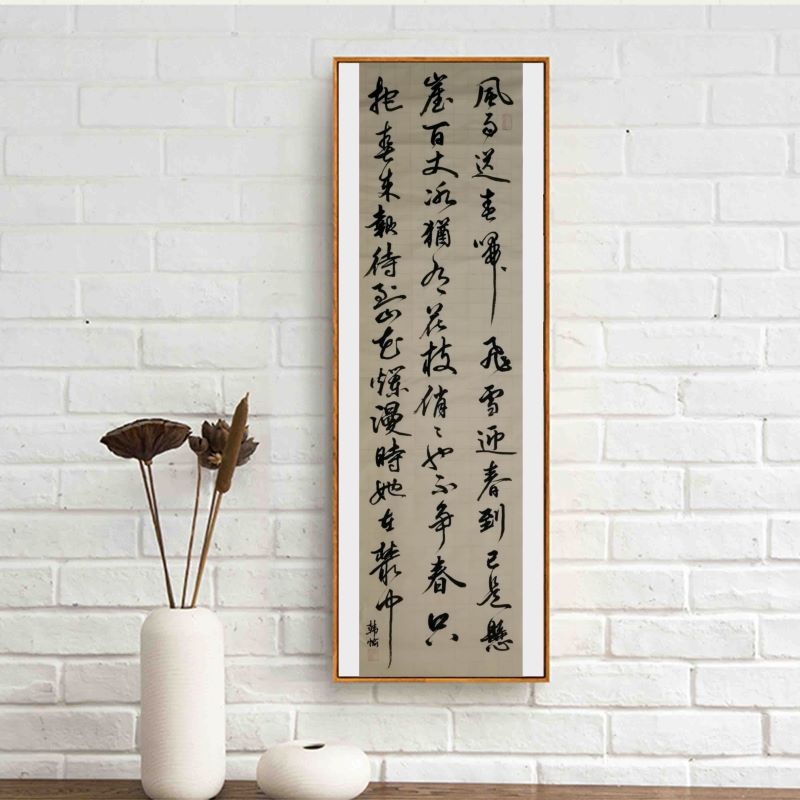 風雨送春歸飛雪迎春到已是懸
崖百丈冰猶有花枝俏々也不争春只
把春来報待到山花爛漫時她在叢中
韩